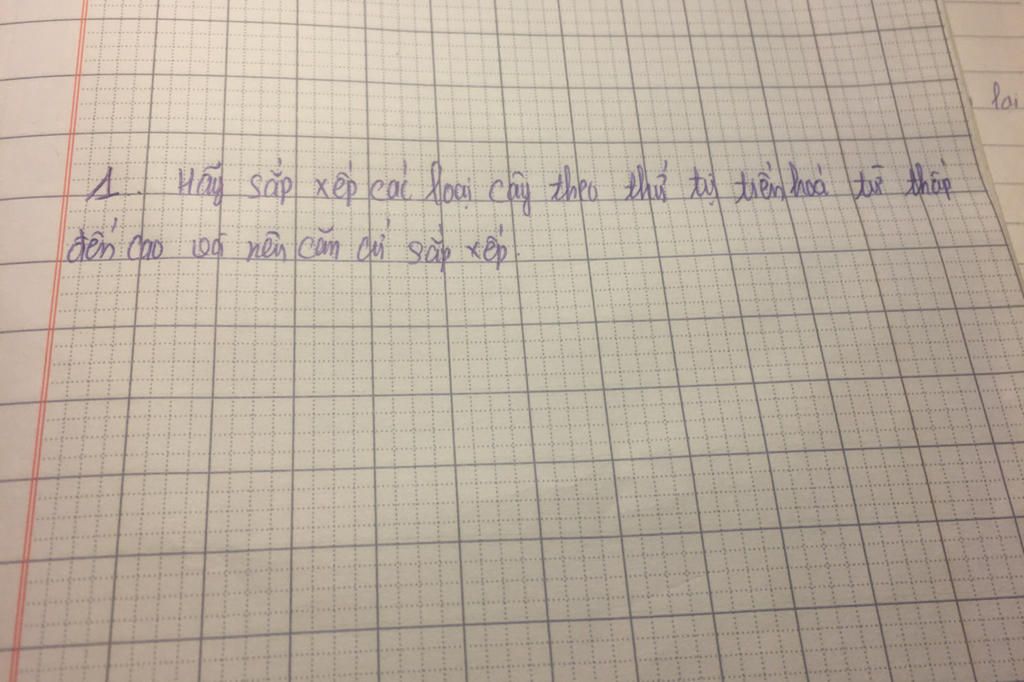 lại
1. Hãy sắp xếp các loại cây theo thứ tự tiến hoá từ thấp
đến cao và nên căn cứ sắp xếp.